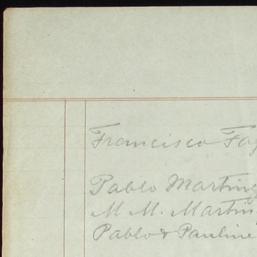 Francisco
Pablo Martin
M. M. Martin
Pablo & Pauline